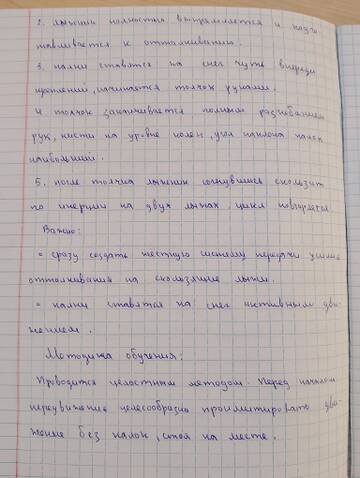 2. лыжник полностью выпрямляется и подго
тавливается к отталкиванию.
3. палки ставятся на снег чуть впереди
креплений, начинается толчок руками.
4 толчок заканчивается полным разгибанием
рук, кисти на уровне колен, угол наклона палок
наибольший.
5. после толчка лыжник согнувшись скользит
по инерции на двух лыжах, цикл повторяется
Важно:
• сразу создать жесткую систему передачи усилия
отталкивания на скользящие лыжи.
• палки ставятся на снег активным дви-
жением.
Методика обучения:
Проводится целостным методом. Перед началом
передвижение целесообразно проимитировать дви-
жение без палок, стоя на месте.